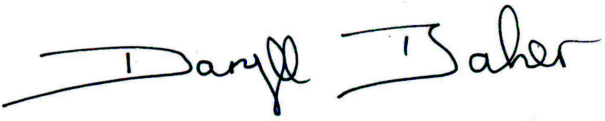 Daryll Baker